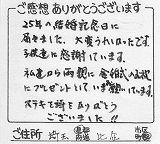 ご感想ありがとうございます
25年の結婚記念日に
届きました。大変うれしかったです。
子供達に感謝しています。
私達から両親に金婚式の
にプレゼントして
ステキな時をありがとう
ございました。
ご住所 埼玉 都道府県 市区町村